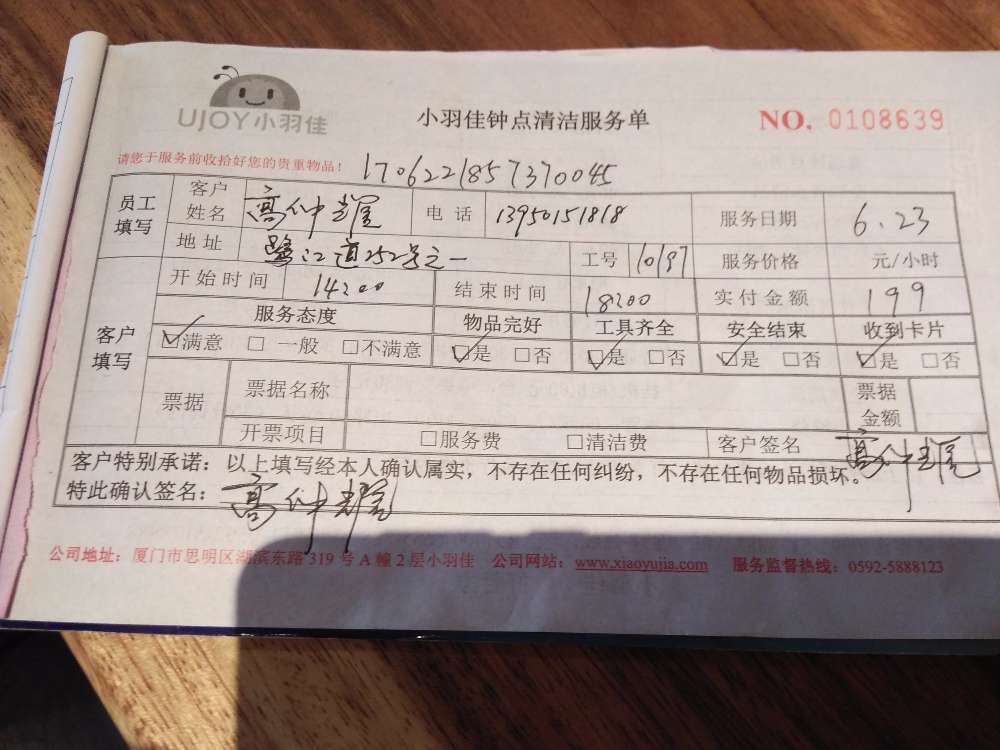 UJOY小羽佳
小羽佳钟点清洁服务单
NO. 0108639
请您于服务前收拾好您的贵重物品!
1706221857370045
员工填写 客户姓名 高仲耀 电话 13950151818 服务日期 6.23
地址 鹭江道252号之一 工号 10197 服务价格 元/小时
客户填写 开始时间 14:00 结束时间 18:00 实付金额 199
服务态度 物品完好 工具齐全 安全结束 收到卡片
☑满意 □一般 □不满意 ☑是 □否 ☑是 □否 ☑是 □否 ☑是 □否
票据 票据名称 票据金额
开票项目 □服务费 □清洁费 客户签名 高仲耀
客户特别承诺:以上填写经本人确认属实,不存在任何纠纷,不存在任何物品损坏。
特此确认签名:高仲耀
公司地址:厦门市思明区湖滨东路319号A幢2层小羽佳 公司网站:www.xiaoyujia.com 服务监督热线:0592-5888123